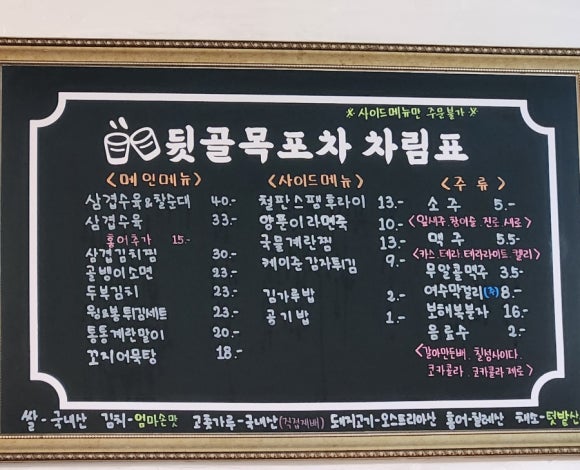 ※사이드메뉴만 주문불가※
뒷골목포차 차림표
<메인메뉴>
삼겹수육&찰순대 40.-
삼겹수육 33.-
홍어추가 15.-
삼겹김치찜 30.-
골뱅이소면 23.-
두부김치 23.-
윙&봉 튀김세트 23.-
통통계란말이 20.-
꼬지어묵탕 18.-
<사이드메뉴>
철판스팸후라이 13.-
양푼이라면죽 10.-
국물계란찜 13.-
케이준감자튀김 9.-
김가루밥 2.-
공기밥 1.-
<주류>
소주 5.-
<잎새주.참이슬.진로.새로>
맥주 5.5-
<카스.테라.테라라이트.켈리>
무알콜맥주 3.5-
여수막걸리 8.-
보해복분자 16.-
음료수 2.-
<갈아만든배. 칠성사이다.
코카콜라. 코카콜라 제로>
쌀-국내산 김치-엄마손맛 고춧가루-국내산(직접재배) 돼지고기-오스트리아산 홍어-칠레산 채소-텃밭산